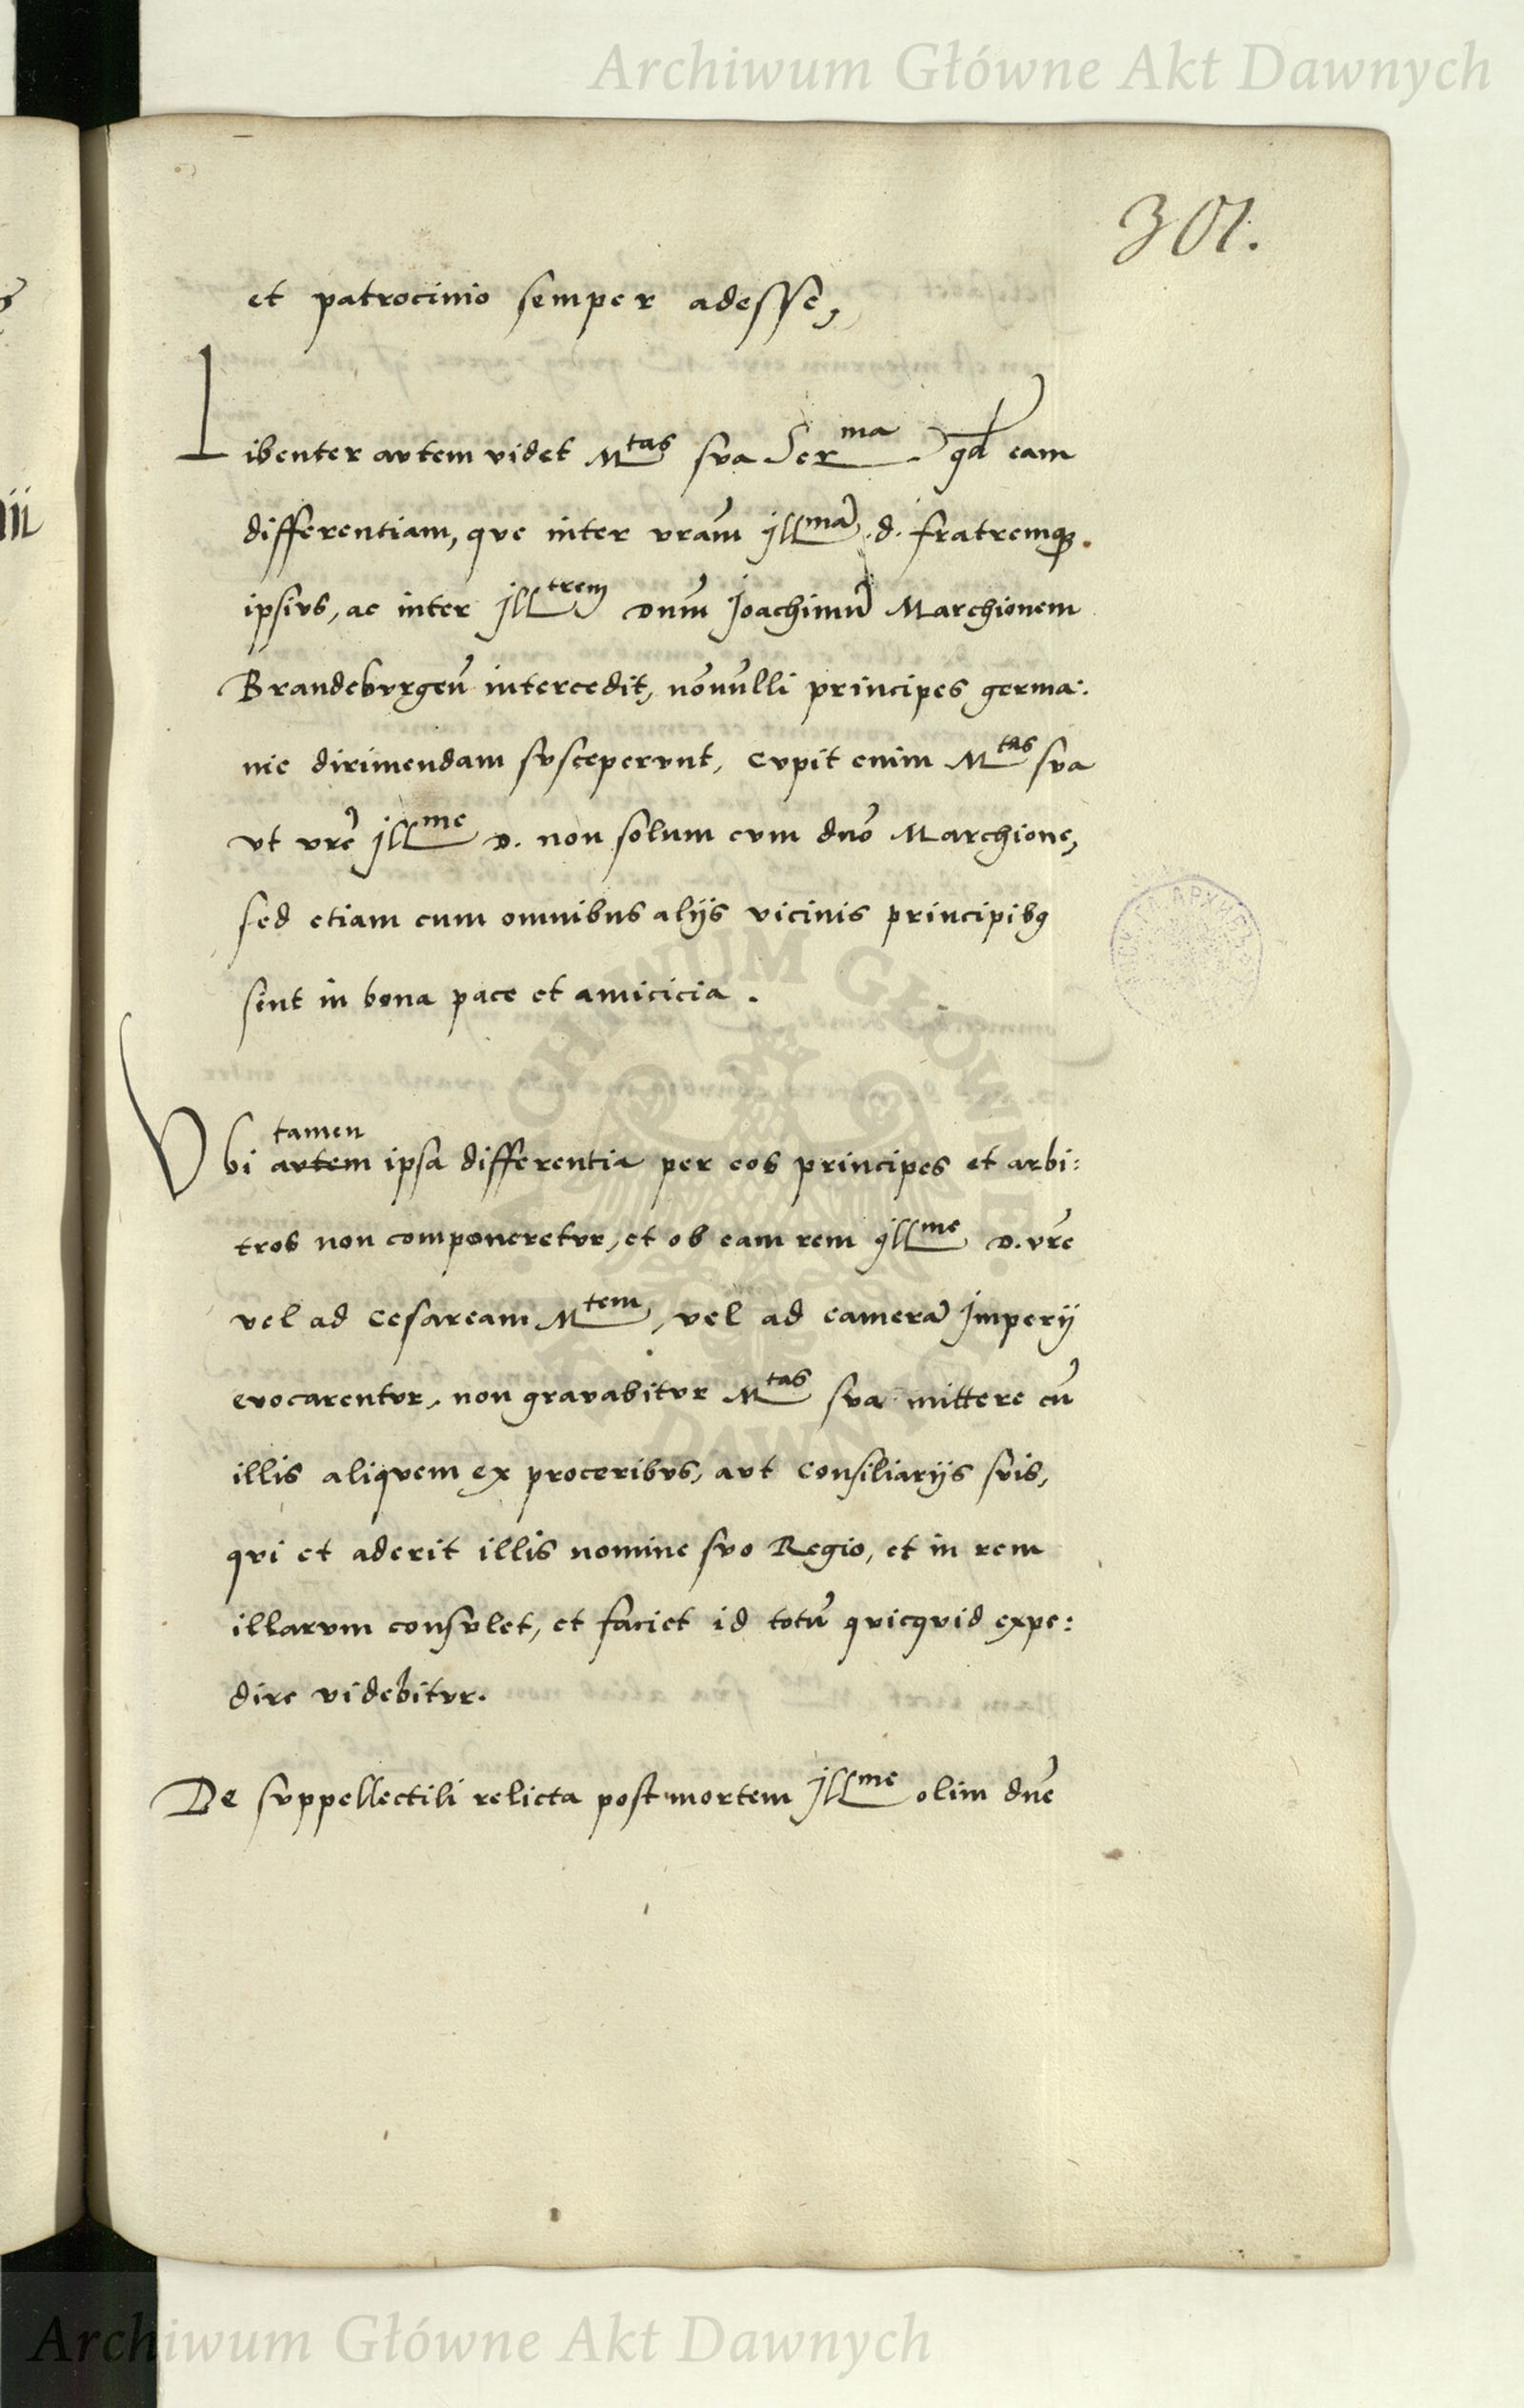 Archiwum Główne Akt Dawnych
301.
et patrocinio semper adesse,
Libenter avtem videt M^tas sva Ser^ma qd eam
differentiam, qve inter vram ill^mā .d. fratremq₃.
ipsivs, ac inter Ill^trem dnm̄ Joachimū Marchionem
Brandebvrgeñ intercedit, nōnvlli principes germa:
nie dirimendam svscepervnt, Cvpit enim M^tas sva
vt vrē ill^me D. non solum cvm dnō Marchione,
sed etiam cum omnibus alijs vicinis principibꝰ
sint in bona pace et amicicia.
tamen
Vbi avtem ipsa differentia per eos principes et arbi:
tros non componeretvr, et ob eam rem ill^me D. vrē
vel ad Cesaream M^tem, vel ad camerā Imperij
evocarentvr, non gravabitvr M^tas sva mittere cū
illis aliqvem ex proceribvs, avt Consiliarijs svis,
qvi et aderit illis nomine svo Regio, et in rem
illarvm consvlet, et faciet id totū qvicqvid expe:
dire videbitvr.
De svppellectili relicta post mortem Ill^me olim dnē
ARCHIWUM GŁÓWNE AKT DAWNYCH
Archiwum Główne Akt Dawnych